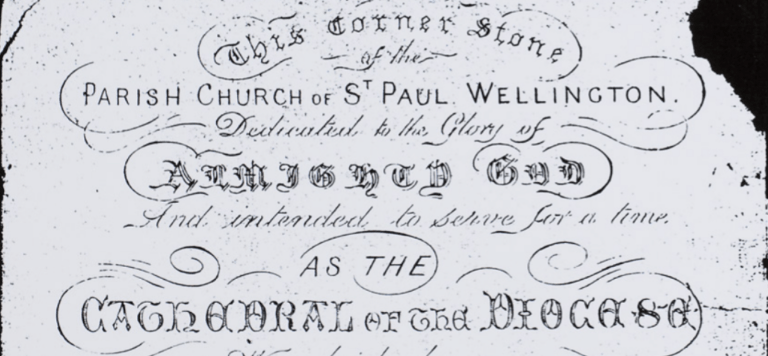 This Corner Stone
of the
PARISH CHURCH OF ST PAUL WELLINGTON.
Dedicated to the Glory of
ALMIGHTY GOD
And intended to serve for a time
AS THE
CATHEDRAL OF THE DIOCESE